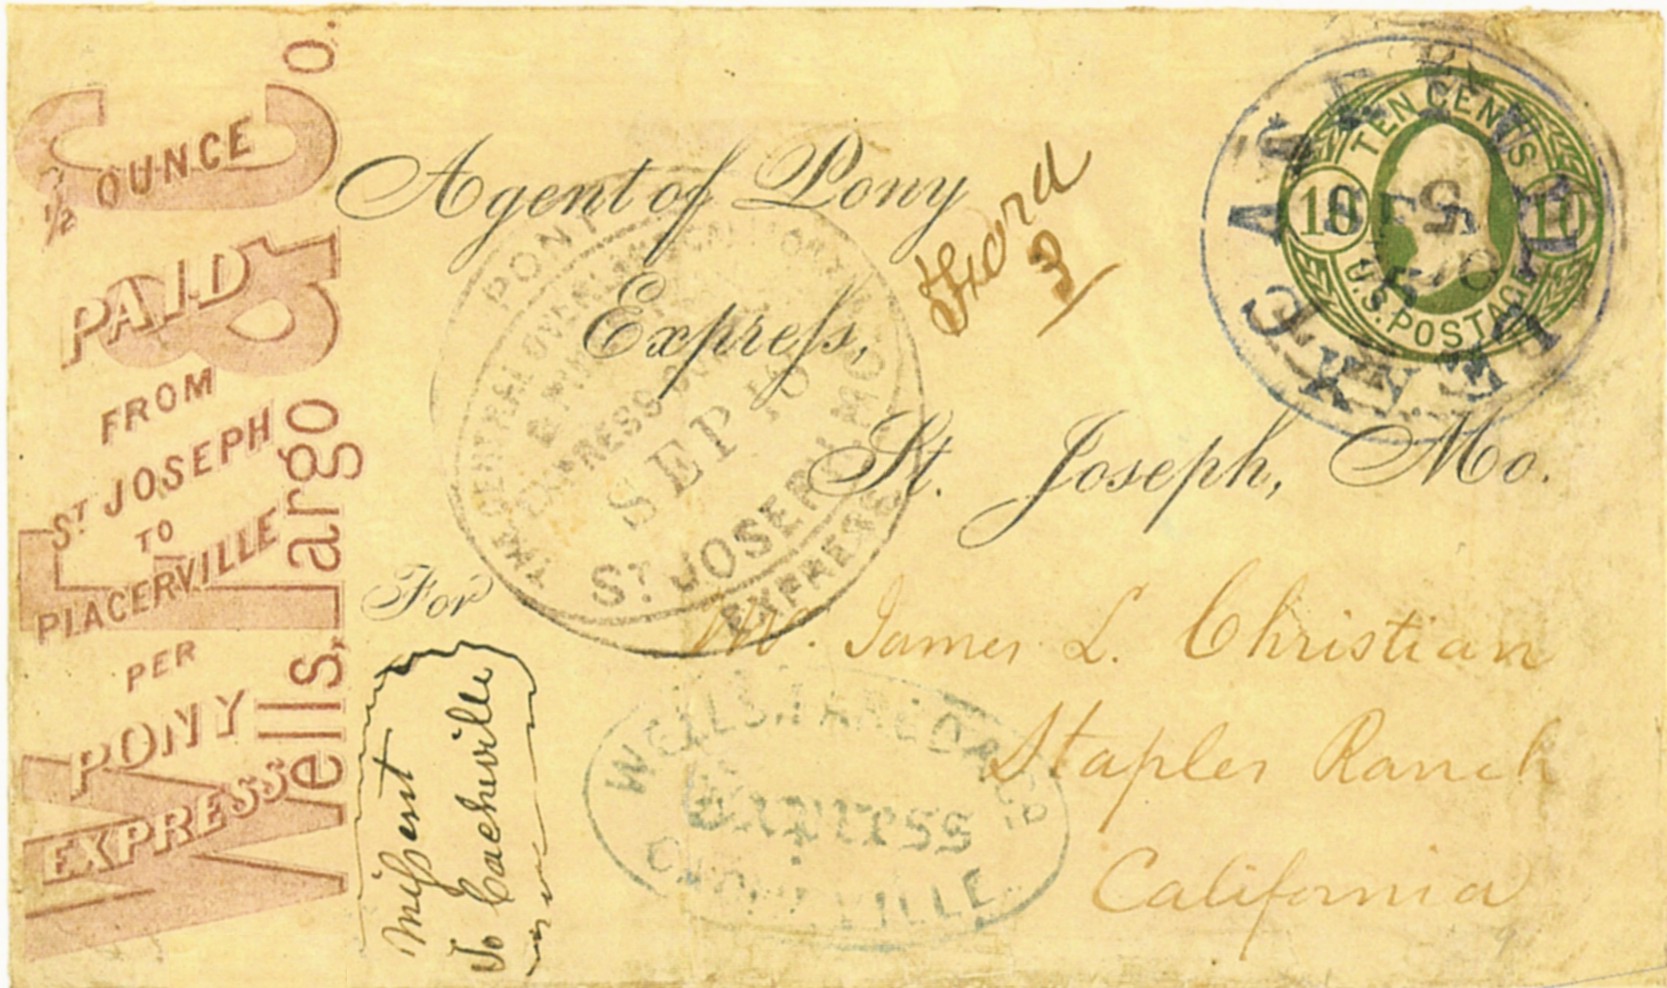 Wells, Fargo & Co.
½ OUNCE
PAID
FROM
ST JOSEPH
TO
PLACERVILLE
PER
PONY
EXPRESS
Agent of Pony
Express,
St. Joseph, Mo.
For
Mr. James L. Christian
Staples Ranch
California
Missent
To Cacheville
3
PONY
EXPRESS
THE CENTRAL OVERLAND
EXPRESS
SEP 10
ST JOSEPH MO
WELLS, FARGO
Express
VILLE
TEN CENTS
10 10
U.S. POSTAGE